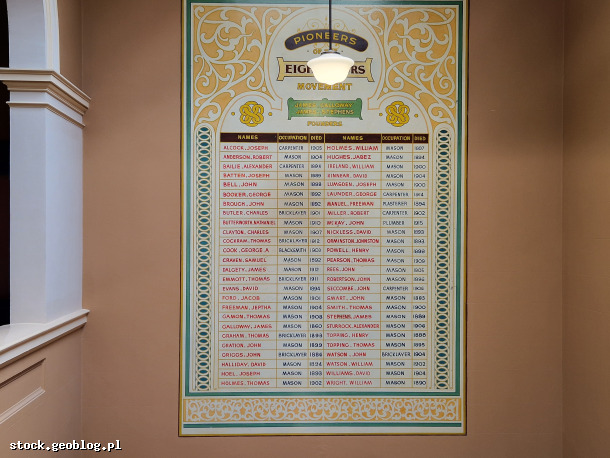 PIONEERS
EIGHT HOURS
MOVEMENT
FOUNDERS
NAMES OCCUPATION DIED NAMES OCCUPATION DIED
ALCOCK, JOSEPH CARPENTER 1905 HOLMES, WILLIAM MASON 1897
ANDERSON, ROBERT MASON 1904 HUGHES, JABEZ MASON 1894
BAILIE, ALEXANDER CARPENTER IRELAND, WILLIAM MASON 1900
BATTEN, JOSEPH MASON 1889 KINNEAR, DAVID MASON 1904
BELL, JOHN MASON LUMSDEN, JOSEPH MASON 1900
BOOKER, GEORGE MASON 1892 LAUNDER, GEORGE CARPENTER 1914
BROUCH, JOHN MASON 1892 MANUEL, FREEMAN PLASTERER 1894
BUTLER, CHARLES BRICKLAYER 1901 MILLER, ROBERT CARPENTER 1902
BUTTERWORTH, NATHANIEL MASON 1910 McKAY, JOHN PLUMBER 1915
CLAYTON, CHARLES MASON 1907 NICKLESS, DAVID MASON 1893
COCKRAM, THOMAS BRICKLAYER 1912 ORMINSTON, JOHNSTON MASON 1893
COOK, GEORGE, A BLACKSMITH POWELL, HENRY MASON
CRAVEN, SAMUEL MASON 1892 PEARSON, THOMAS MASON
DALGETY, JAMES MASON REES, JOHN MASON 1905
EMMOTT, THOMAS BRICKLAYER 1911 ROBERTSON, JOHN MASON
EVANS, DAVID MASON 1894 SECCOMBE, JOHN CARPENTER
FORD, JACOB MASON 1901 SMART, JOHN MASON
FREEMAN, JEPTHA MASON SMITH, THOMAS MASON 1900
GAMON, THOMAS MASON 1908 STEPHENS, JAMES MASON 1889
GALLOWAY, JAMES MASON 1860 STURROCK, ALEXANDER MASON
GRAHAM, THOMAS BRICKLAYER TOPPING, HENRY MASON
GRATION, JOHN MASON 1899 TOPPING, THOMAS MASON 1895
GRIGGS, JOHN BRICKLAYER WATSON, JOHN BRICKLAYER
HALLIDAY, DAVID MASON WATSON, WILLIAM MASON 1902
HOEL, JOSEPH MASON 1893 WILLIAMS, DAVID MASON
HOLMES, THOMAS MASON 1902 WRIGHT, WILLIAM MASON 1890
stock.geoblog.pl